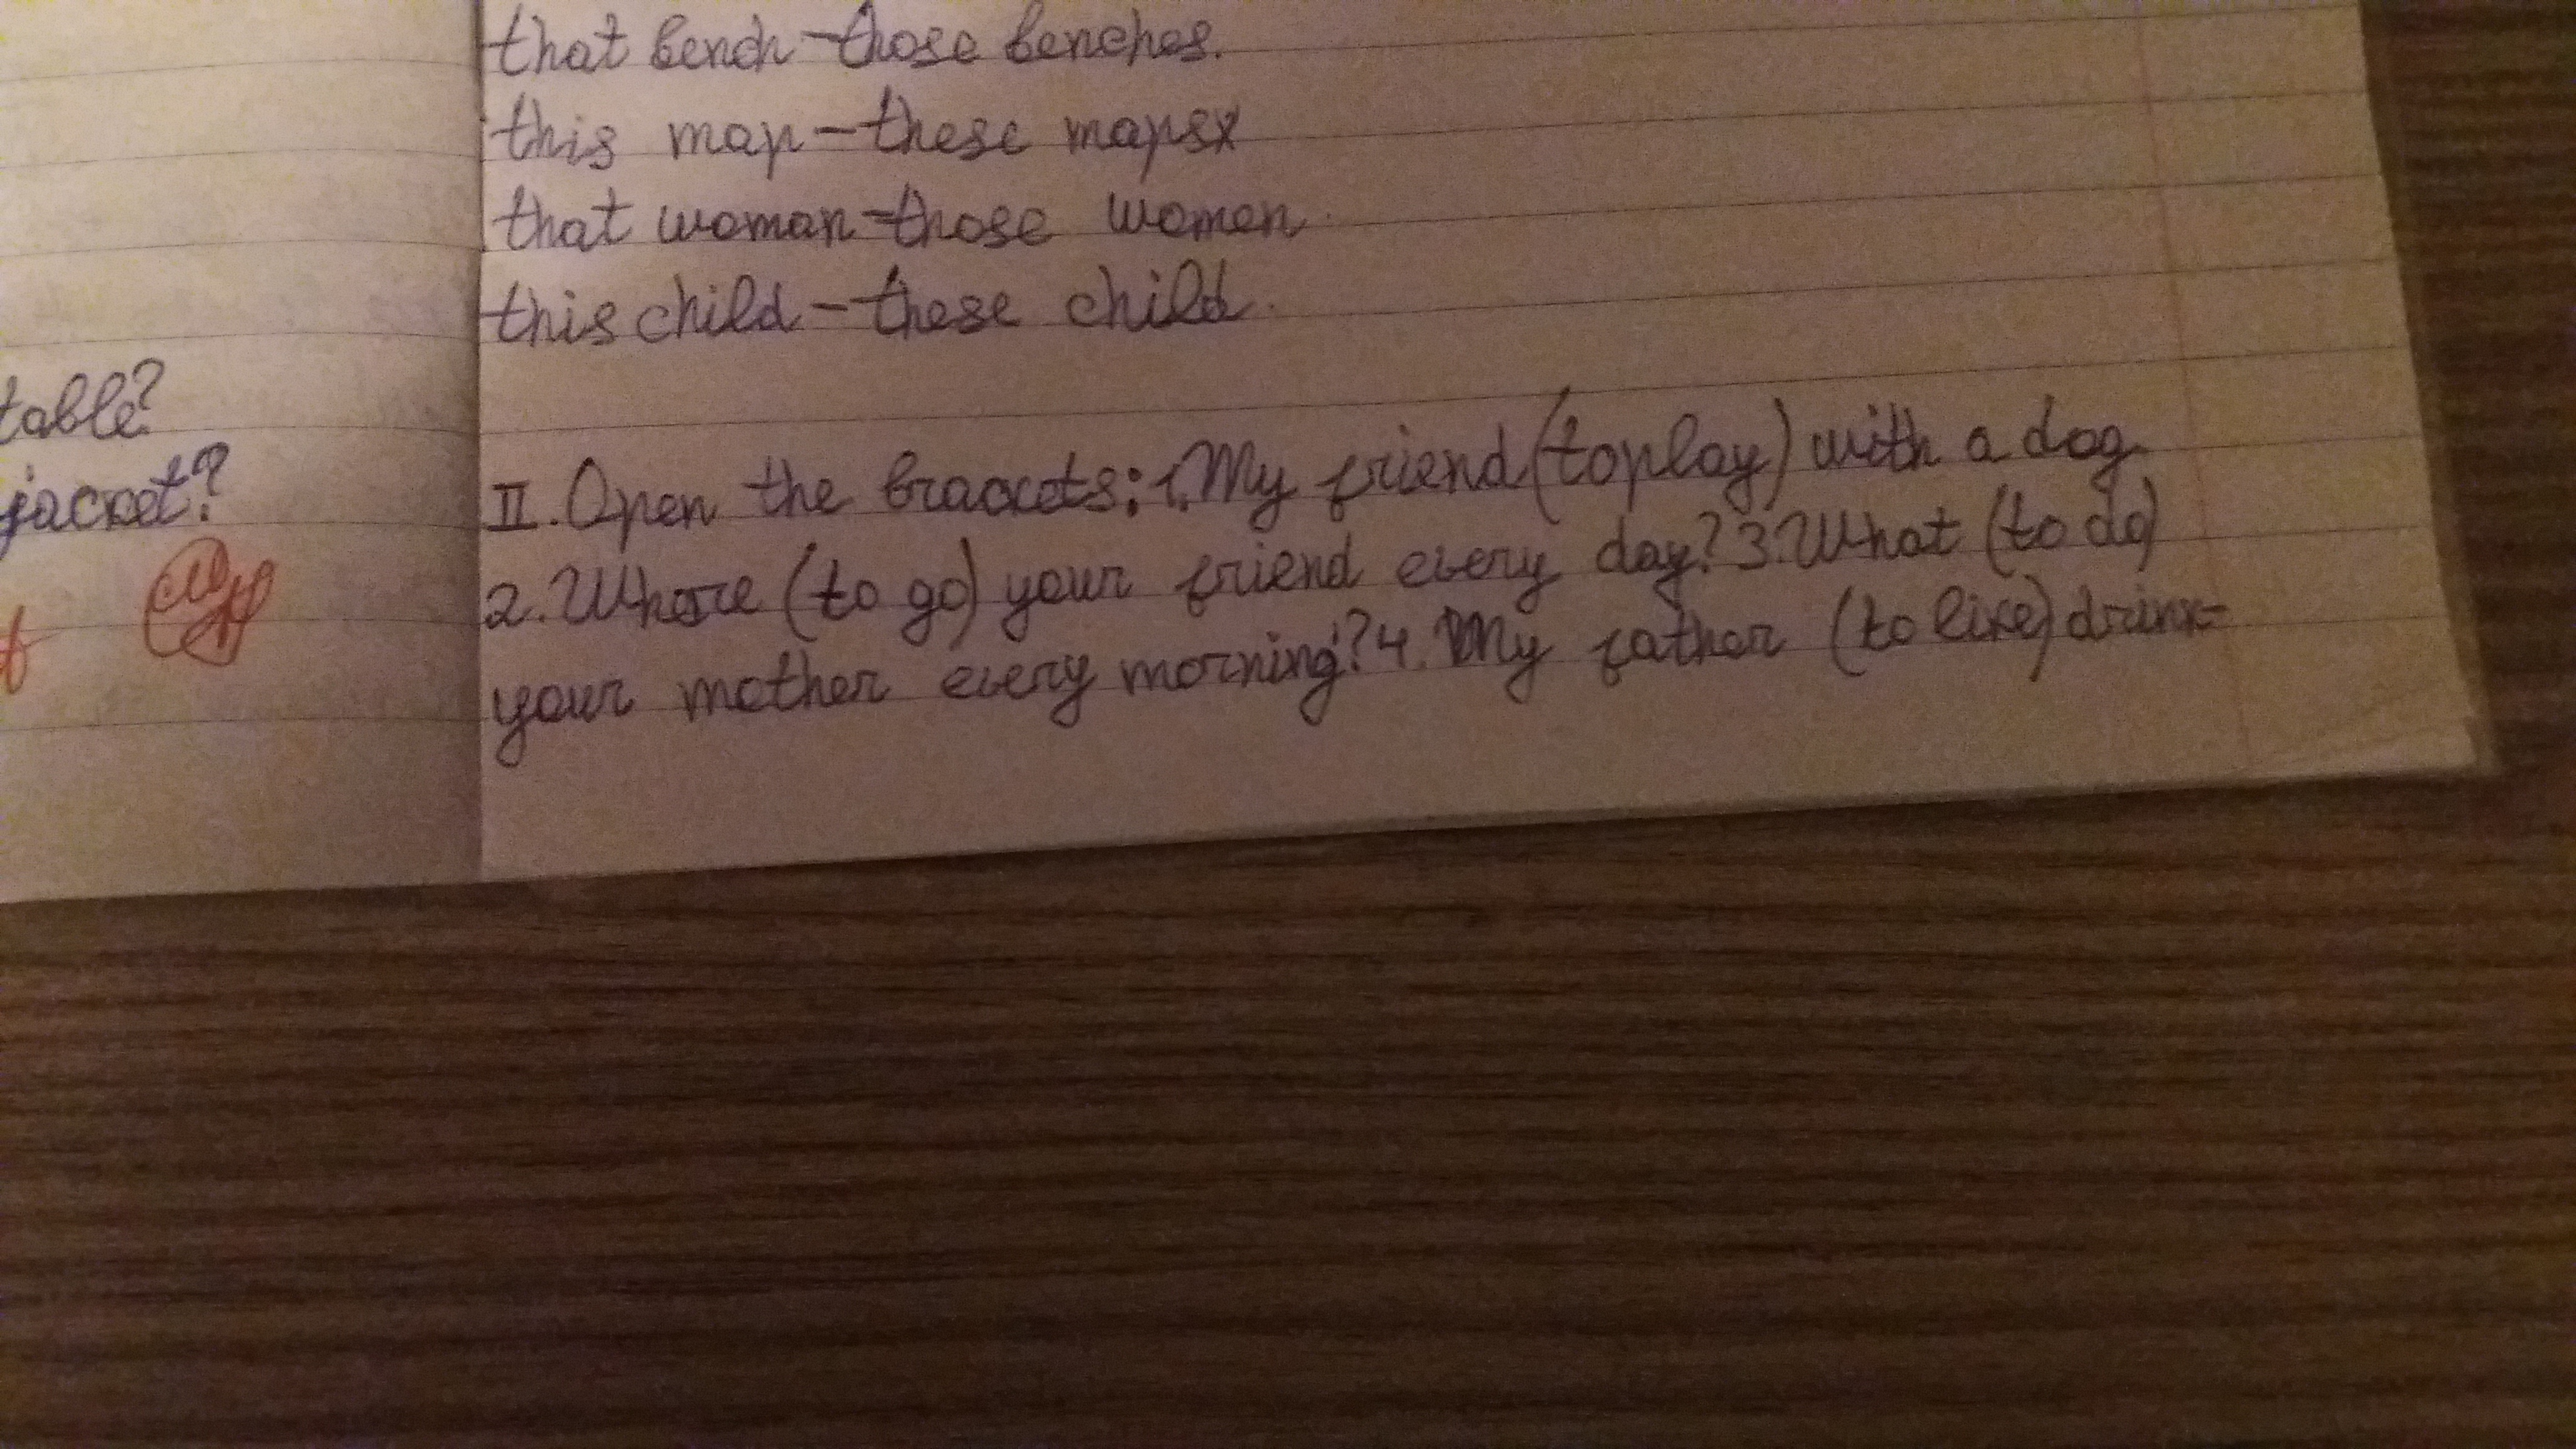 table?
jacket?
that bench-those benches.
this map-these maps
that woman-those women.
this child-these child.
II. Open the brackets: 1. My friend (to play) with a dog
2. Where (to go) your friend every day? 3. What (to do)
your mother every morning? 4. My father (to like) drink-